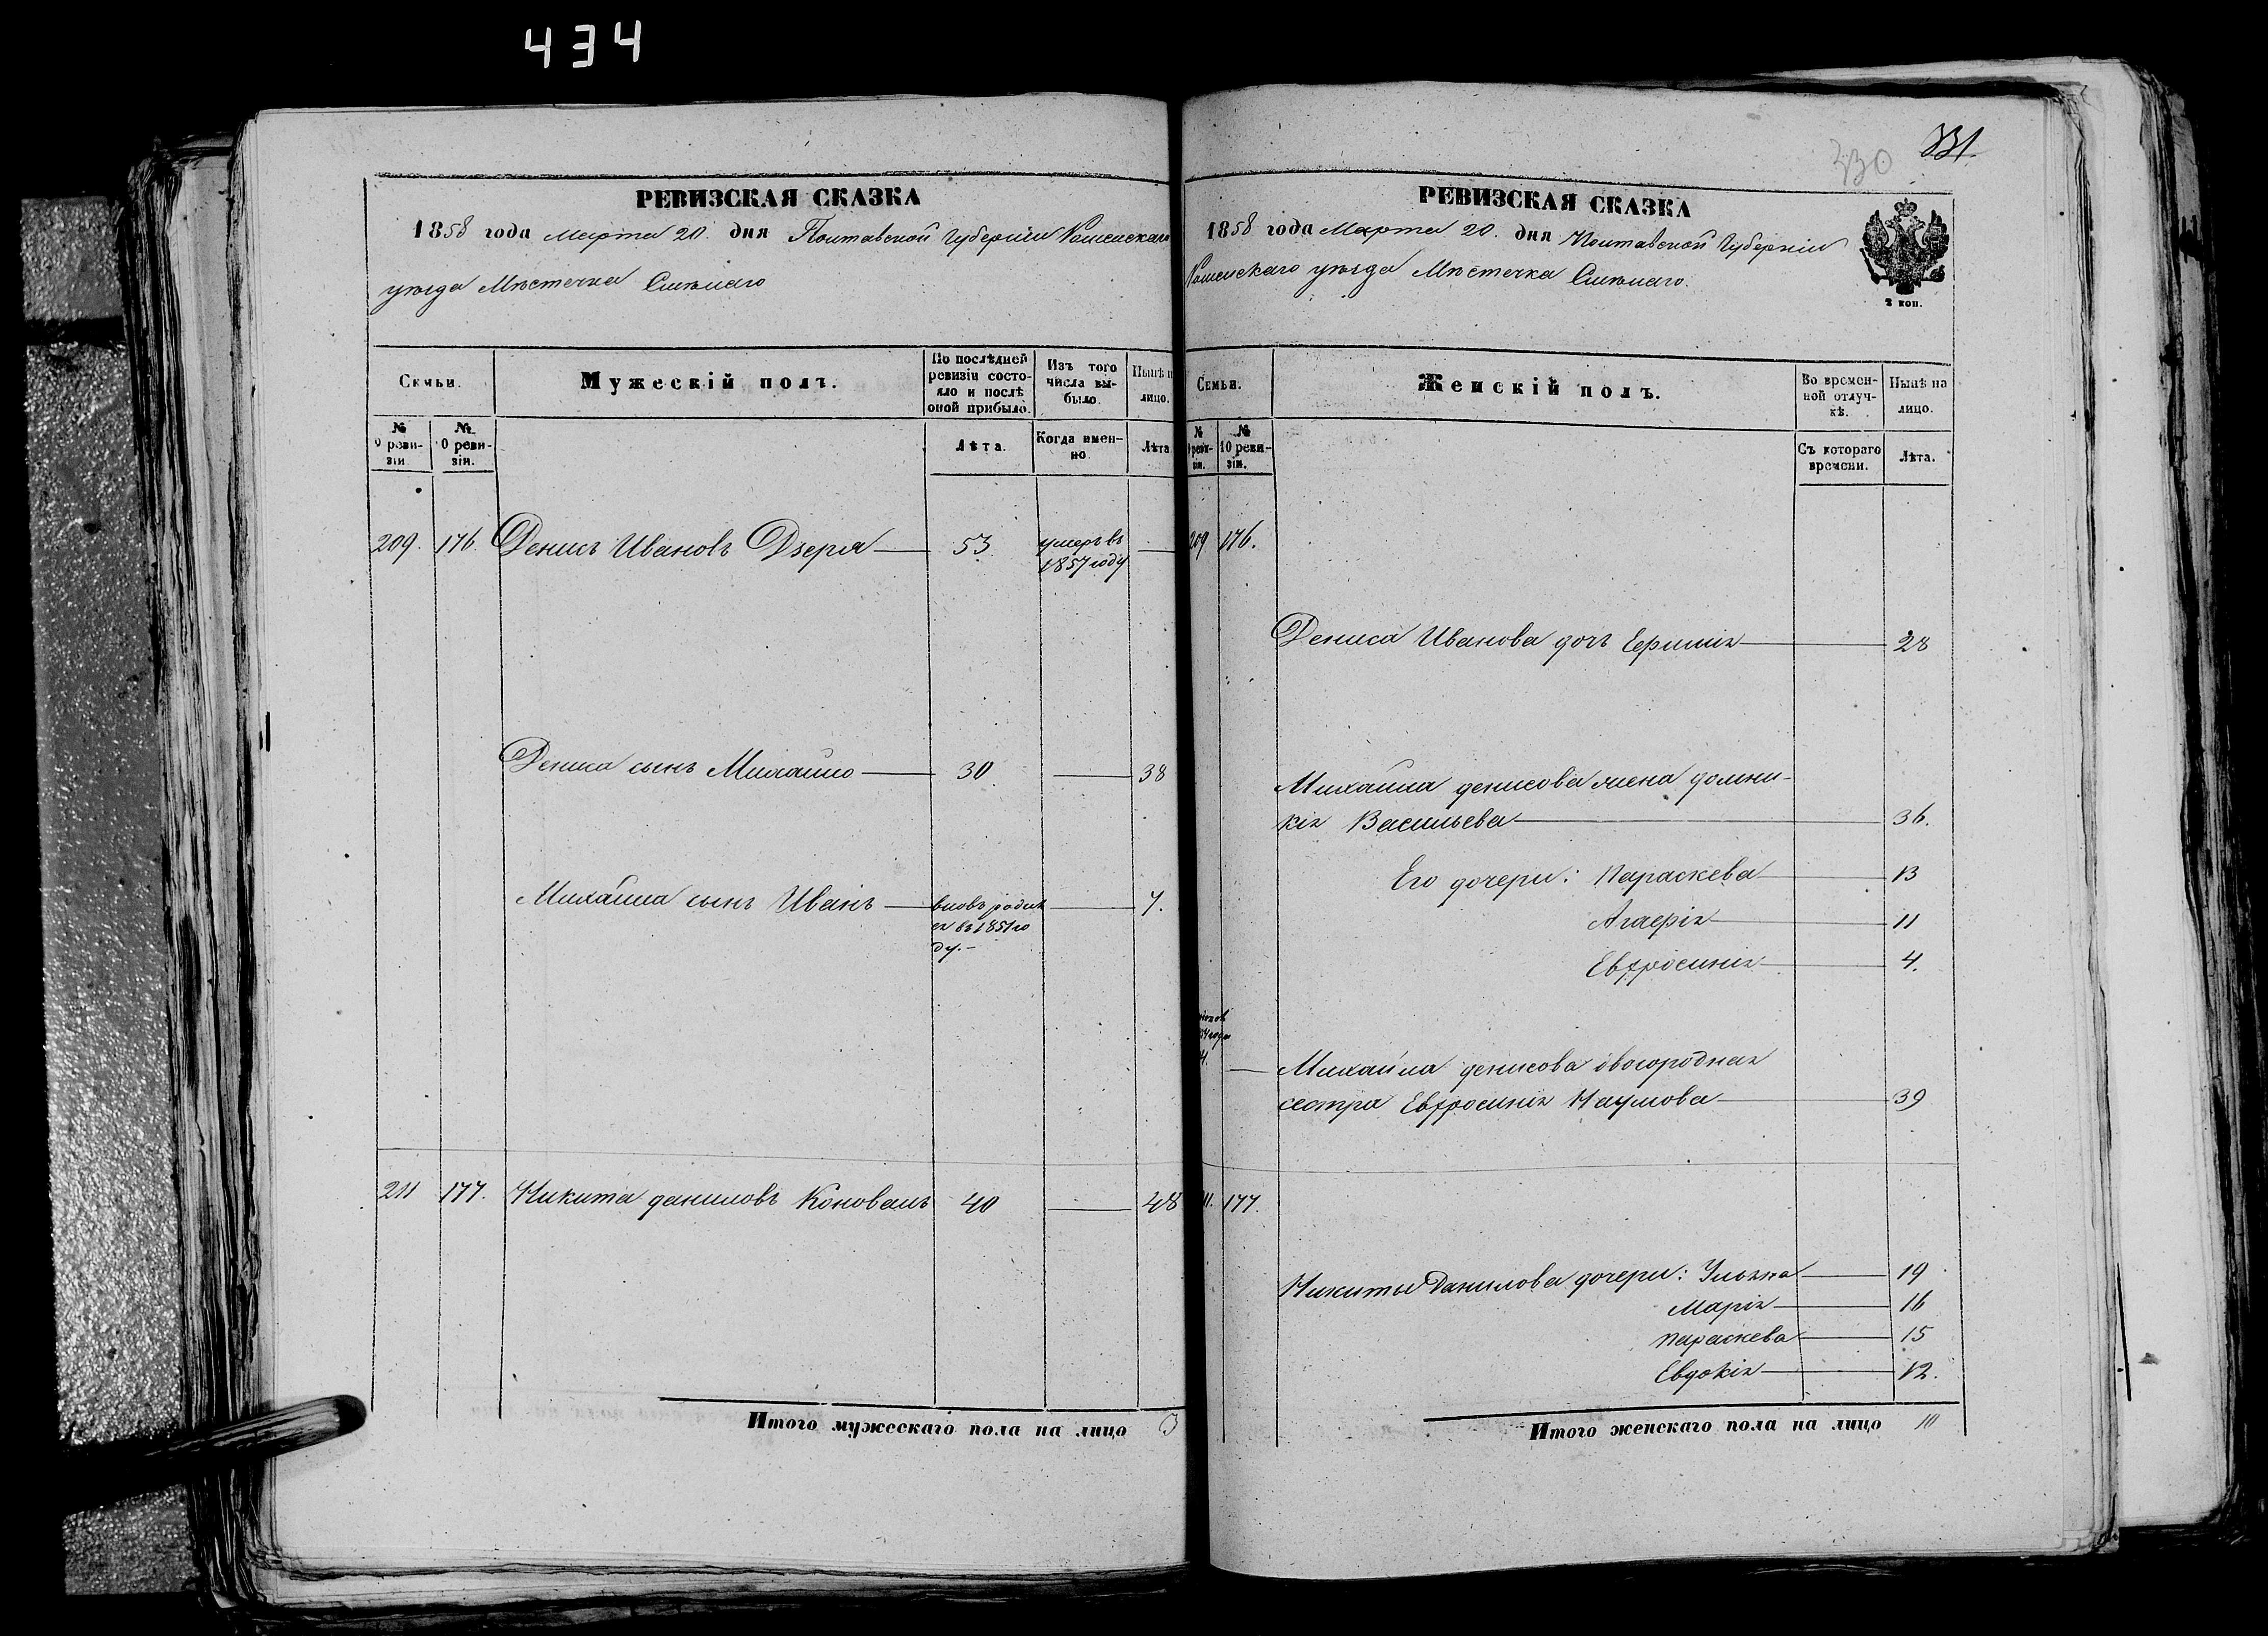 434
РЕВИЗСКАЯ СКАЗКА
1858 года Марта 20. дня Полтавской Губерніи Роменскаго
уѣзда Мѣстечка Смѣлаго
Семьи.
Мужескій полъ.
По послѣдней
ревизіи состо-
яло и послѣ
оной прибыло.
Изъ того
числа вы-
было.
Нынѣ н
лицо.
№
9 реви-
зіи
№
10 реви-
зіи.
Лѣта.
Когда имен-
но.
Лѣта
209. 176. Денисъ Ивановъ Дзеря 53 умеръ въ
1857 году
Дениса сынъ Михайло 30 38
Михайла сынъ Иванъ вновь родил
ся въ 1851 го
ду. 7.
211 177. Никита даниловъ Коновалъ 40 48
Итого мужескаго пола на лицо 3
330 331.
РЕВИЗСКАЯ СКАЗКА
1858 года Марта 20. дня Полтавской Губерніи
Роменскаго уѣзда Мѣстечка Смѣлаго.
2 коп.
Семьи.
Женскій полъ.
Во времен-
ной отлуч-
кѣ.
Нынѣ на
лицо.
№
9 реви-
зіи.
№
10 реви-
зіи.
Съ котораго
времени.
Лѣта.
209 176.
Дениса Иванова дочь Ефимія 28
Михайла денисова жена домни-
кія Васильева 36.
Его дочери: Параскева 13
Агафія 11
Евфросинія 4.
Михайла денисова двоюродная
сестра Евфросинія Наумова 39
11. 177.
Никиты Данилова дочери: Ульяна 19
Марія 16
Параскева 15
Евдокія 12.
Итого женскаго пола на лицо 10